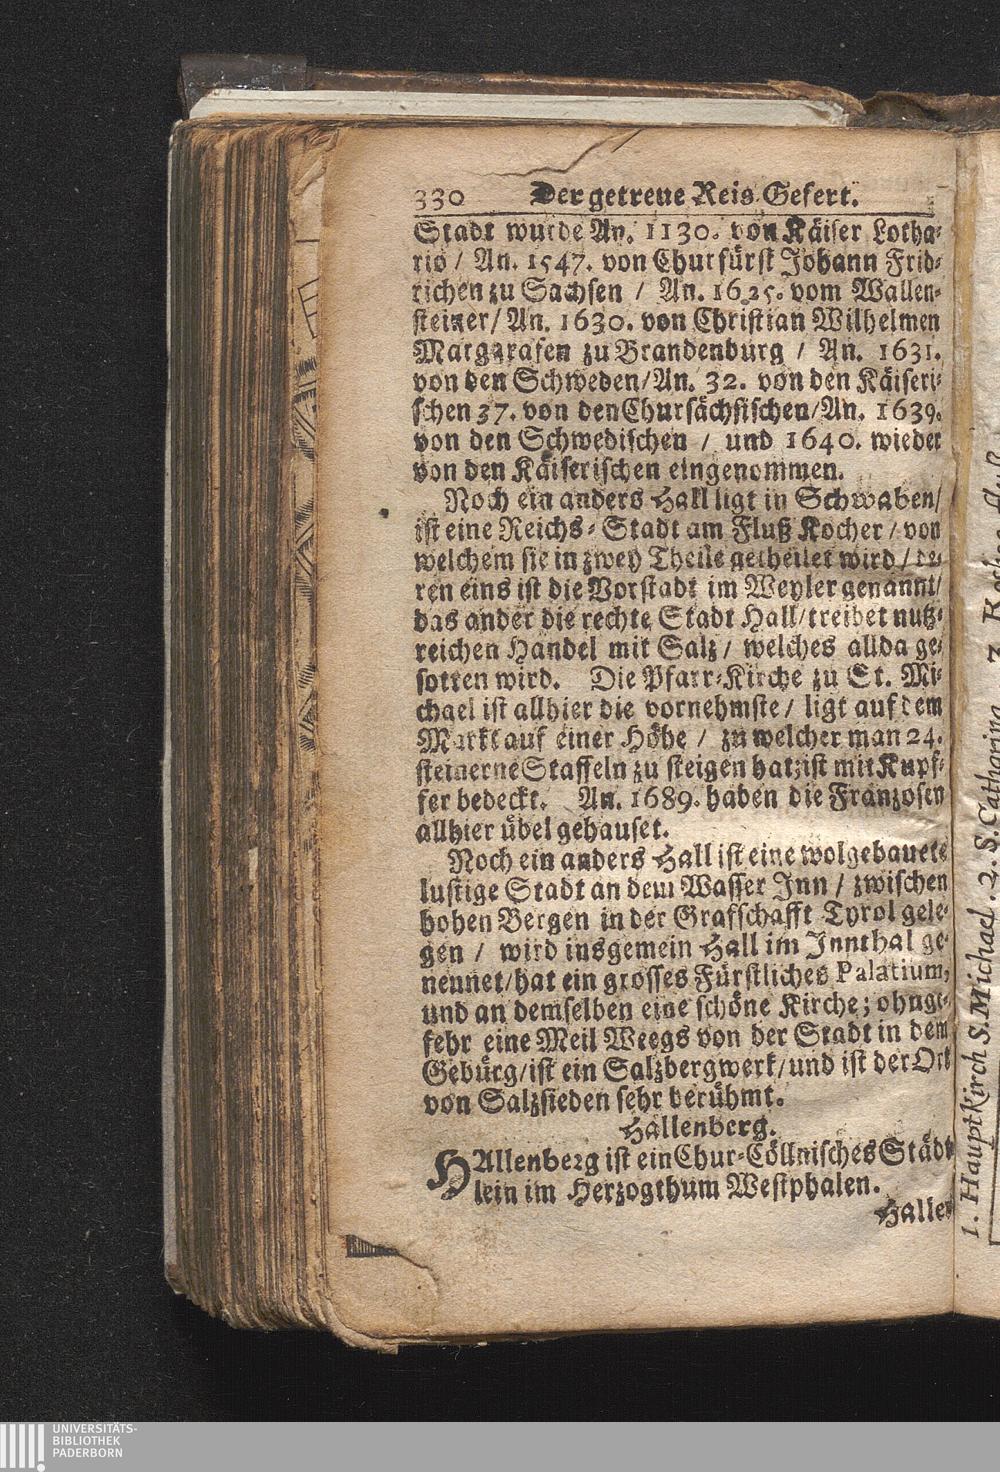 330 Der getreue Reis-Gefert.
Stadt wurde An. 1130. von Käiser Lotha-
rio / An. 1547. von Churfürst Johann Frid-
richen zu Sachsen / An. 1625. vom Wallen-
steiner / An. 1630. von Christian Wilhelmen
Marggrafen zu Brandenburg / An. 1631.
von den Schweden / An. 32. von den Käiseri-
schen 37. von den Chursächsischen / An. 1639.
von den Schwedischen / und 1640. wieder
von den Käiserischen eingenommen.
Noch ein anders Hall ligt in Schwaben /
ist eine Reichs-Stadt am Fluß Kocher / von
welchem sie in zwey Theile getheilet wird / de-
ren eins ist die Vorstadt im Weyler genannt /
das ander die rechte Stadt Hall / treibet nutz-
reichen Handel mit Saltz / welches allda ge-
sotten wird. Die Pfarr-Kirche zu St. Mi-
chael ist allhier die vornehmste / ligt auf dem
Markt auf einer Höhe / zu welcher man 24.
steinerne Staffeln zu steigen hat; ist mit Kupf-
fer bedeckt. An. 1689. haben die Franzosen
allhier übel gehauset.
Noch ein anders Hall ist eine wolgebauete
lustige Stadt an dem Wasser Inn / zwischen
hohen Bergen in der Grafschafft Tyrol gele-
gen / wird insgemein Hall im Innthal ge-
nennet / hat ein grosses Fürstliches Palatium,
und an demselben eine schöne Kirche; ohnge-
fehr eine Meil Weegs von der Stadt in dem
Gebürg / ist ein Salzbergwerk / und ist der Ort
von Salzsieden sehr berühmt.
Hallenberg.
HAllenberg ist ein Chur-Cöllnisches Städt
lein im Herzogthum Westphalen.
Haller
1. Haupt Kirch S. Michael. 2. S. Catharina
UNIVERSITÄTS-
BIBLIOTHEK
PADERBORN